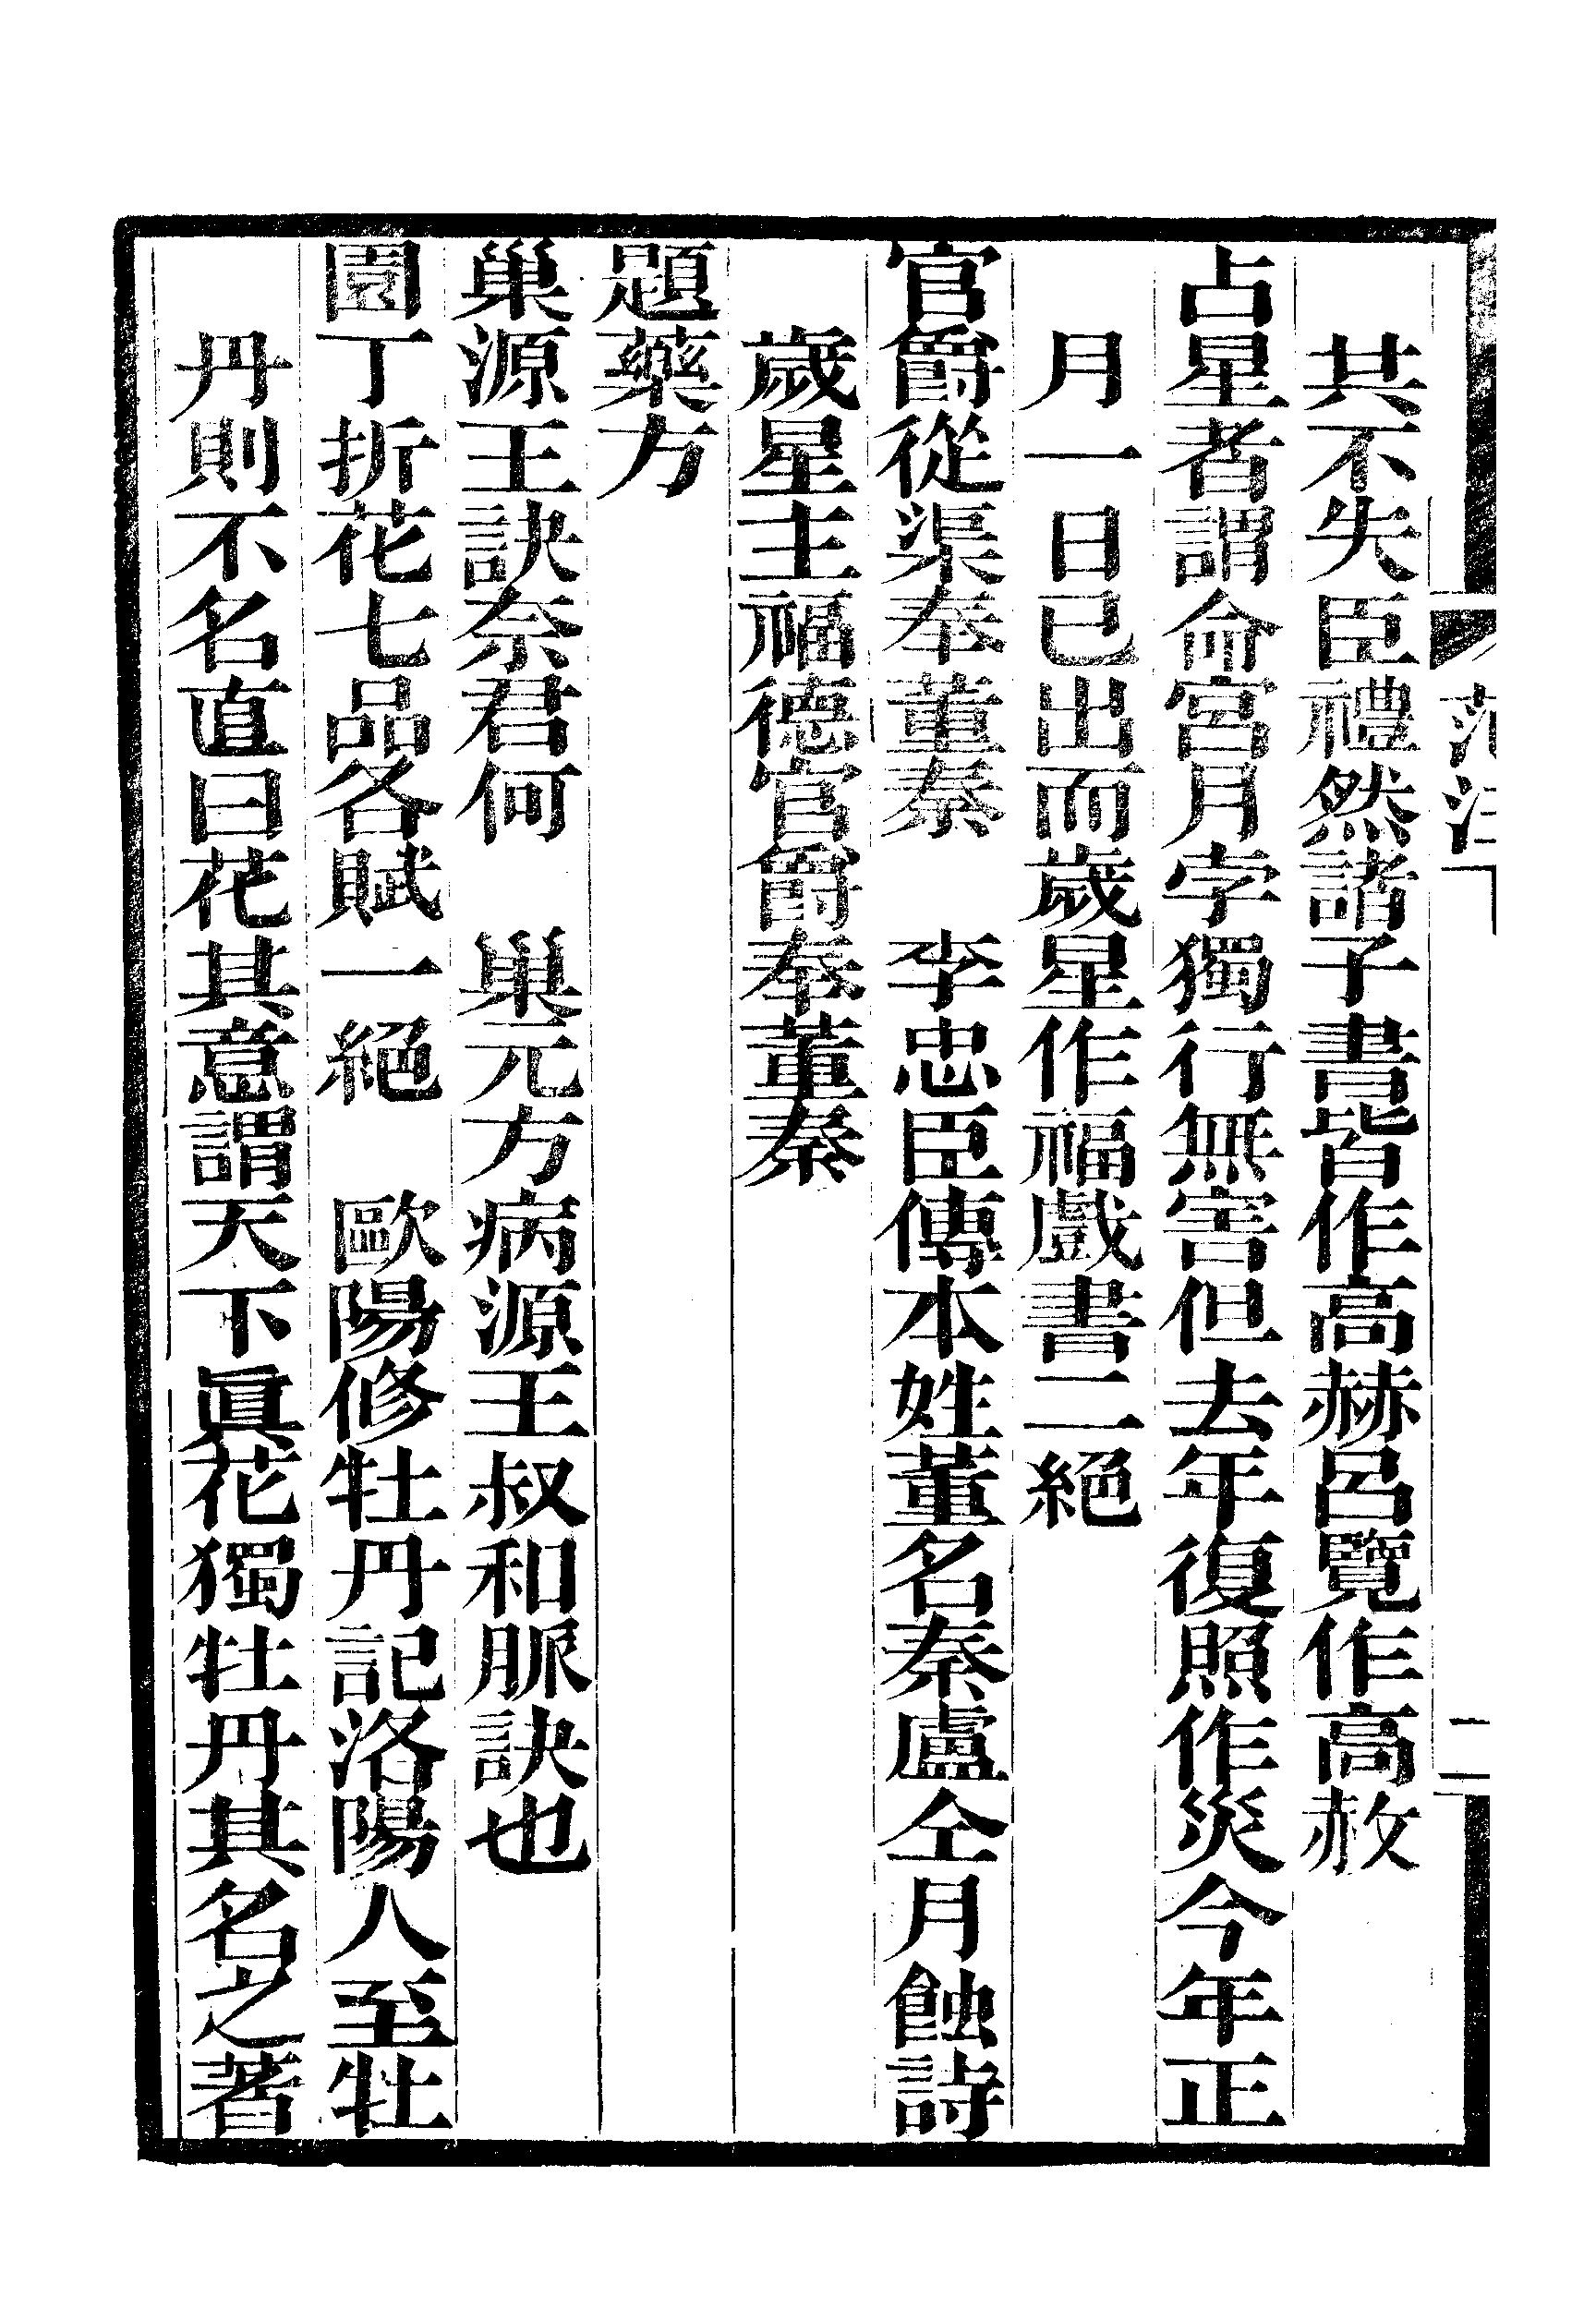 范注下
二
共不失臣禮然諸子書皆作高赫呂覽作高赦
占星者謂命宮月孛獨行無害但去年復照作災今年正
月一日已出而歲星作福戲書二絕
官爵從渠奉董秦　李忠臣傳本姓董名秦盧仝月蝕詩
歲星主福德官爵奉董秦
題藥方
巢源王訣奈君何　巢元方病源王叔和脈訣也
園丁折花七品各賦一絕　歐陽修牡丹記洛陽人至牡
丹則不名直曰花其意謂天下眞花獨牡丹其名之著